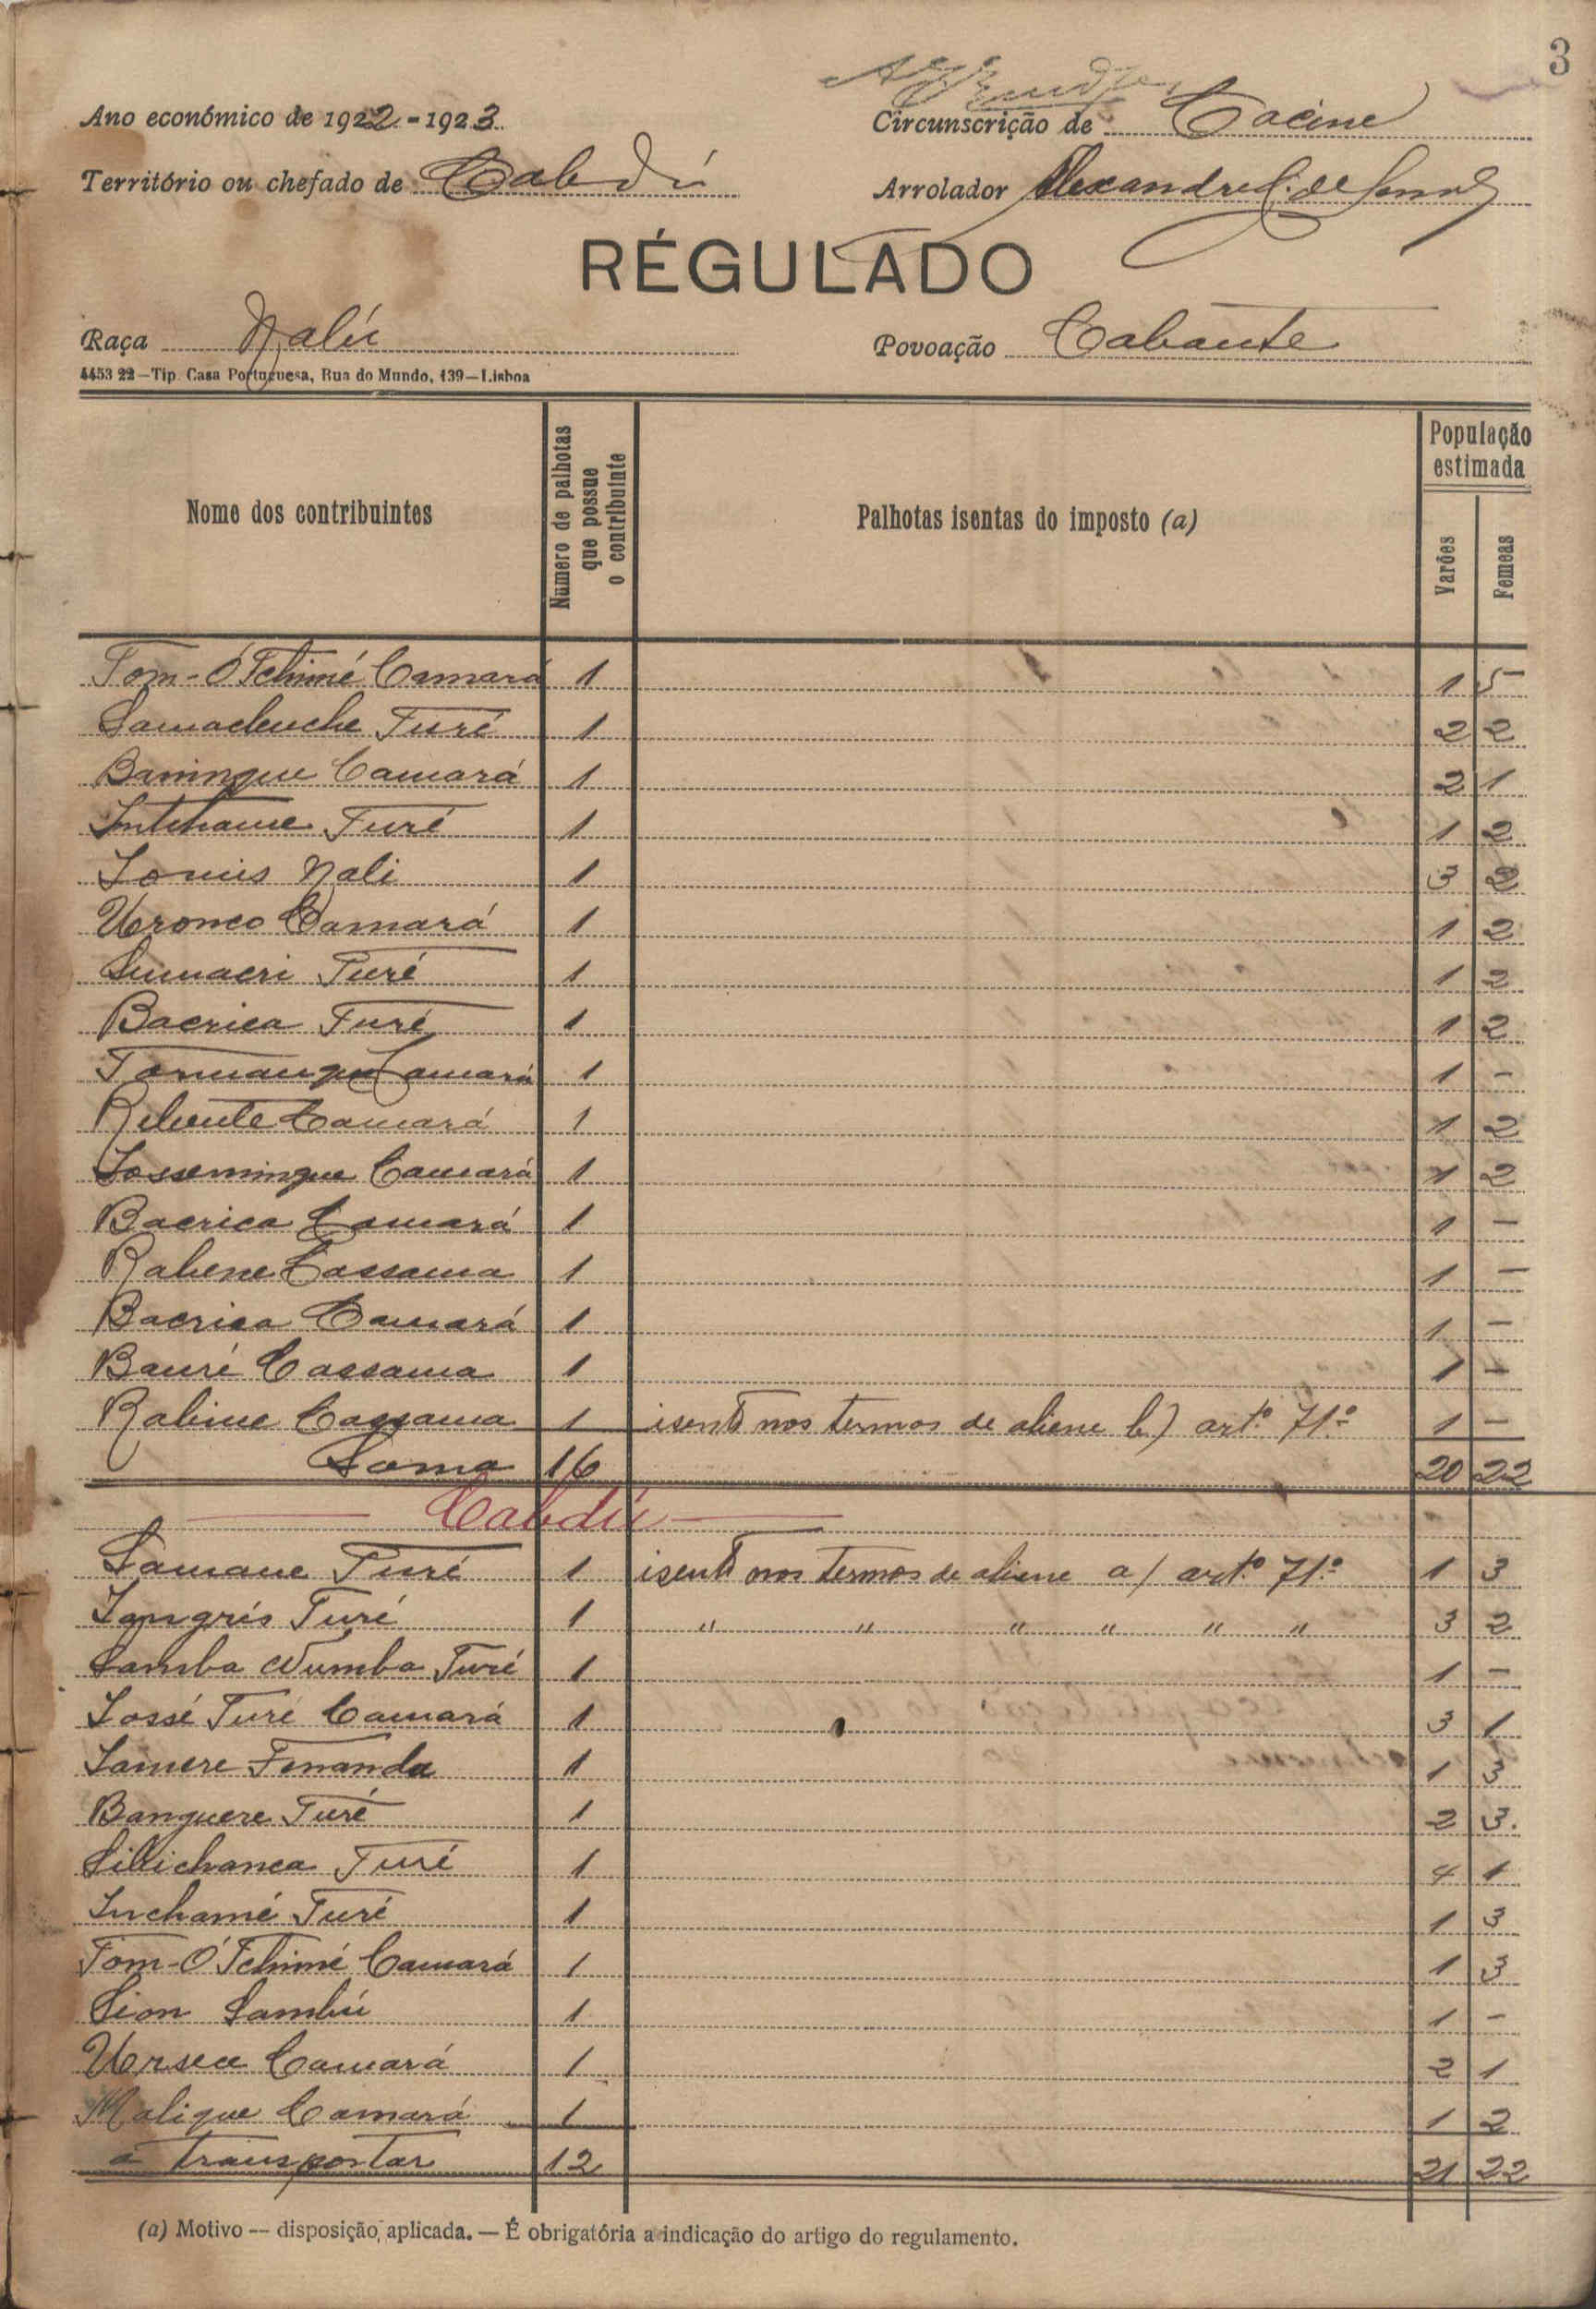 3
Ano económico de 1922-1923
Circunscrição de Cacine
Território ou chefado de Cabdú
Arrolador Alexandre
RÉGULADO
Raça Nalú
Povoação Cabante
4453 22—Tip. Casa Portuguesa, Rua do Mundo, 139—Lisboa
Nome dos contribuintes
Número de palhotas que possue o contribuinte
Palhotas isentas do imposto (a)
População estimada
Varões
Femeas
Tom-Ó Tchimé Camará 1 1 5
Turé 1 2 2
Baningue Camará 1 2 1
Turé 1 1 2
Nali 1 3 2
Uronco Camará 1 1 2
Sumacri Turé 1 1 2
Bacrica Turé 1 1 2
Camará 1 1 -
Camará 1 1 2
Camará 1 1 2
Bacrica Camará 1 1 -
Rabene Cassama 1 1 -
Bacrica Camará 1 1 -
Bauré Cassama 1 1 -
Rabine Cassama 1 isento nos termos de aliene b) artº 71º 1 -
Soma 16 20 22
Cabdú
Samane Turé 1 isento nos termos de aliene a) artº 71º 1 3
Turé 1 " " " " " " 3 2
Samba Turé 1 1 -
Turé Camará 1 3 1
1 1 3
Banguere Turé 1 2 3.
Turé 1 4 1
Inchamé Turé 1 1 3
Tom-Ó Tchimé Camará 1 1 3
Sion Sambú 1 1 -
Camará 1 2 1
Malique Camará 1 1 2
a transportar 12 21 22
(a) Motivo — disposição aplicada. — É obrigatória a indicação do artigo do regulamento.